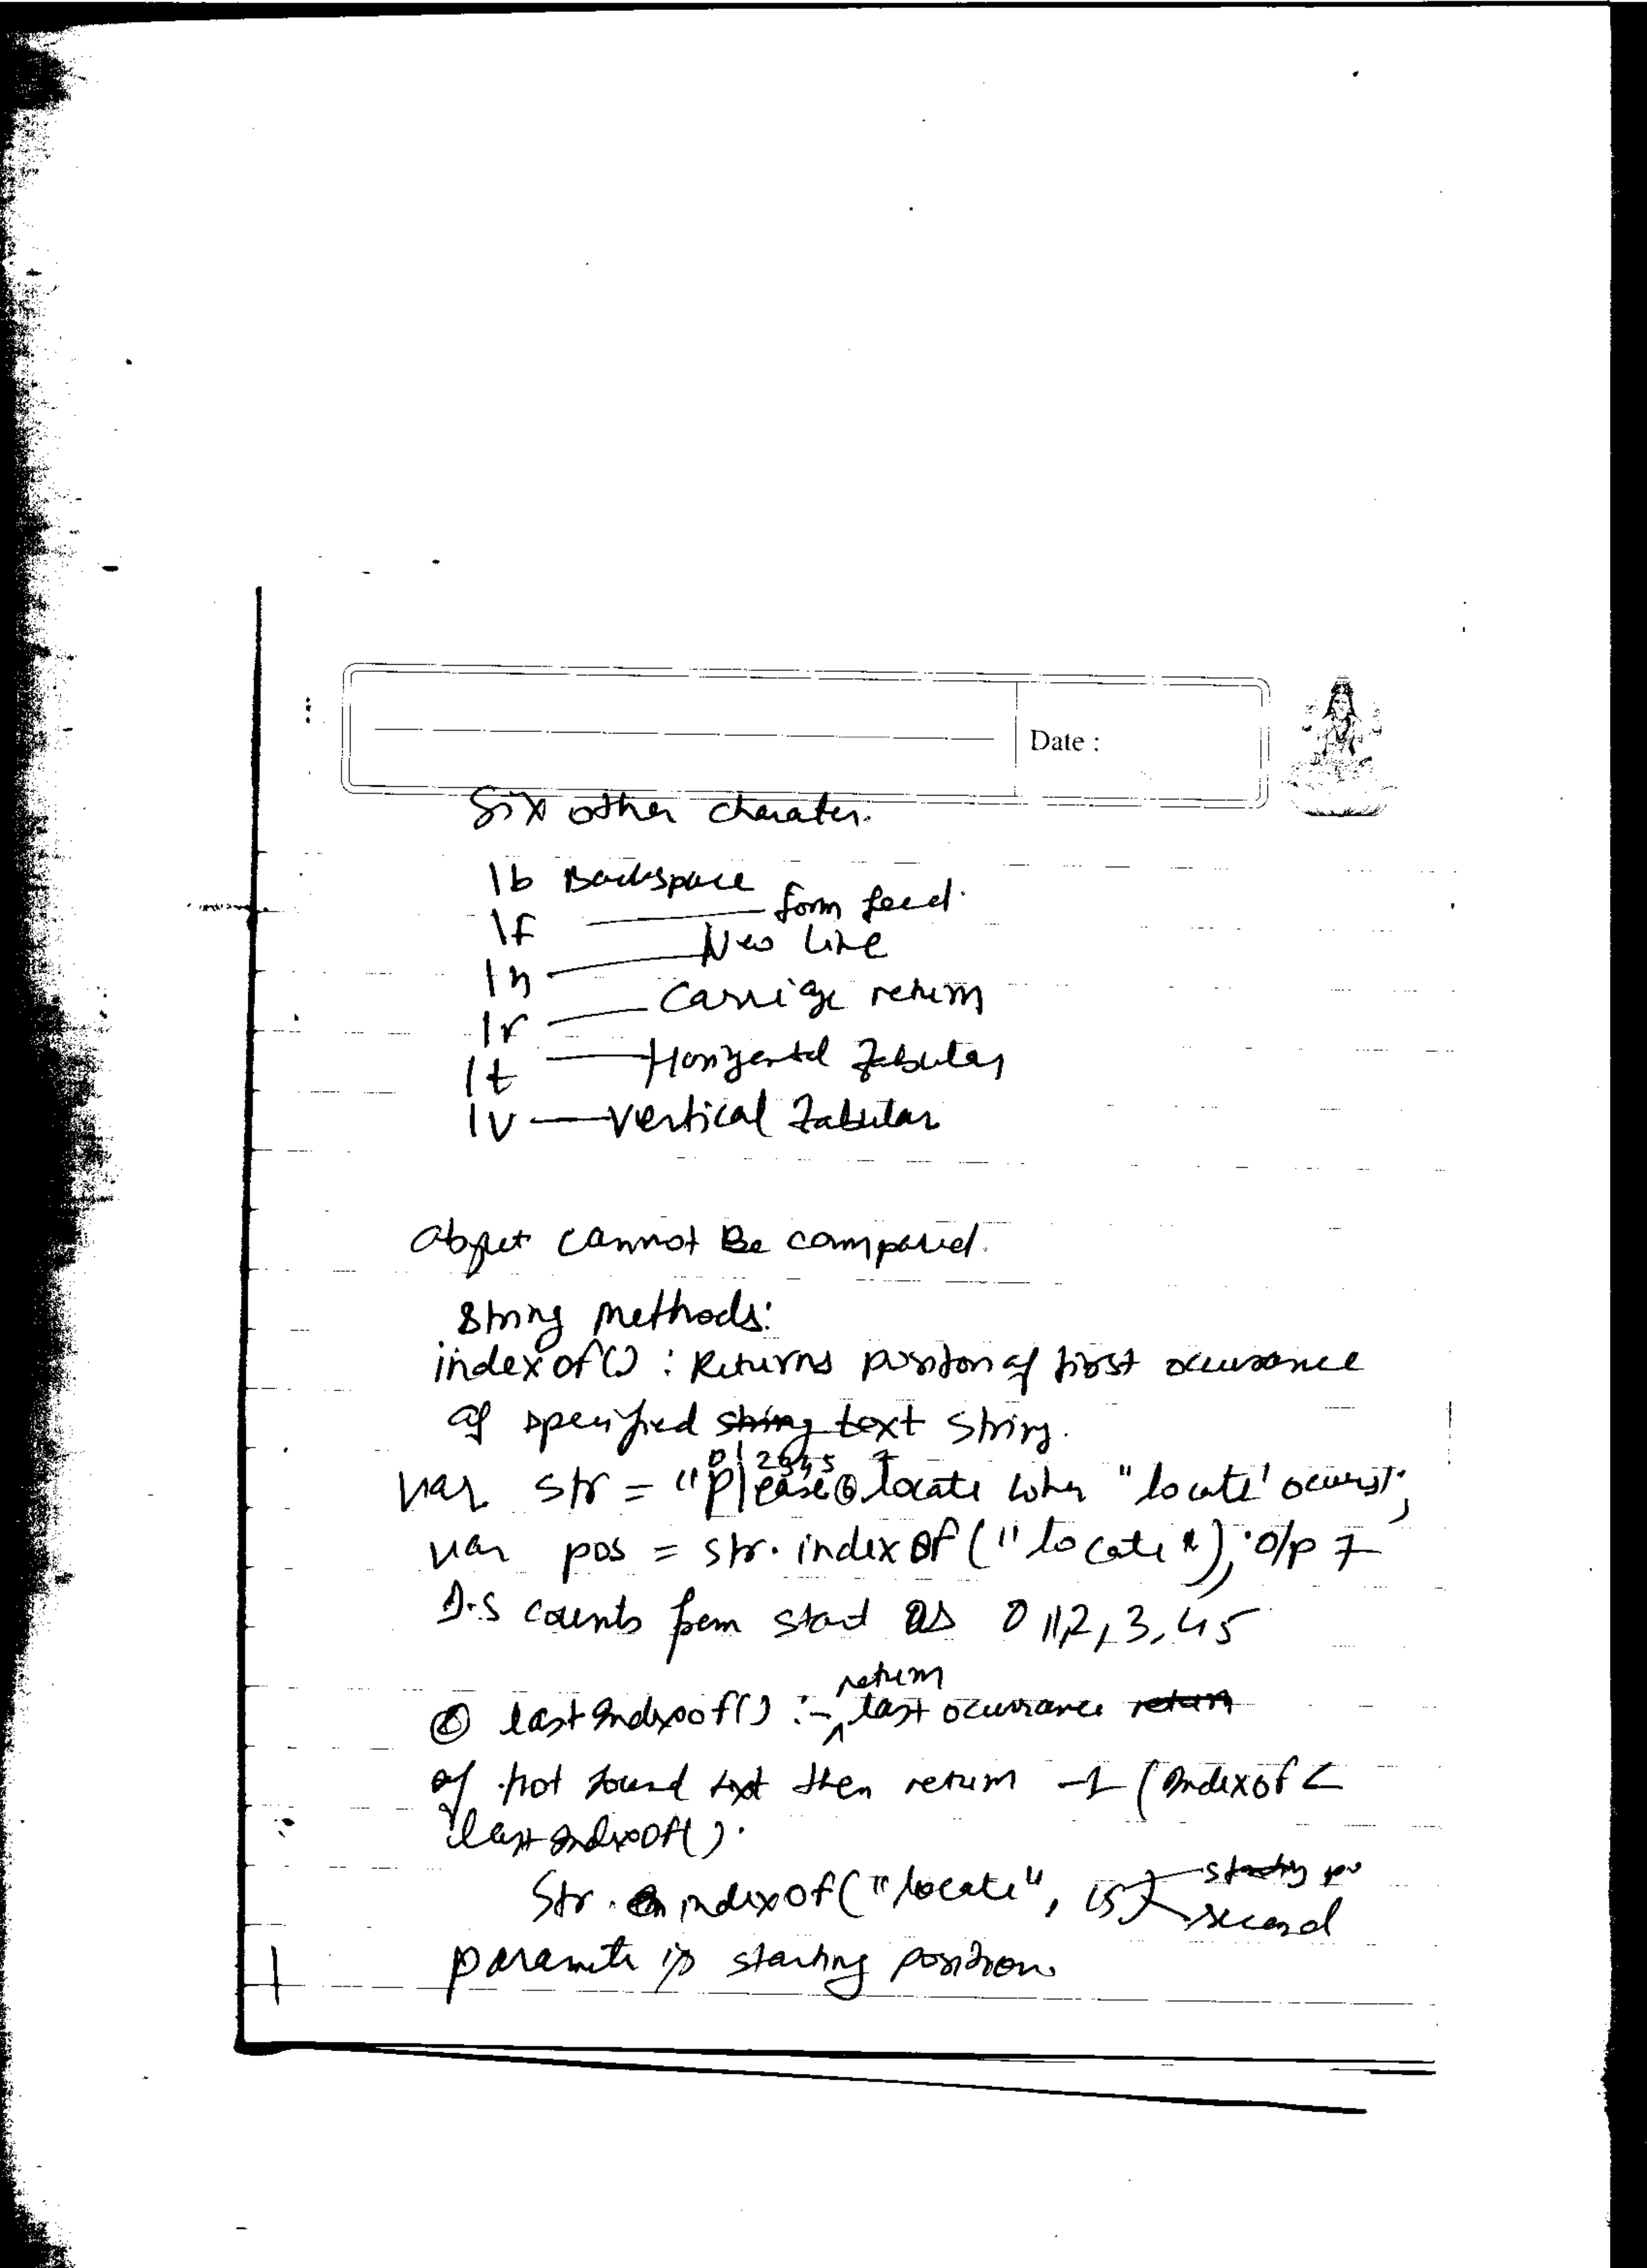 Date :
Six other charater.
\b Backspace
\f — form feed.
\n — New Line
\r — Carriage return
\t — Horizontal Tabular
\v — vertical Tabular
Object cannot Be compared.
String methods:
indexof() : Returns position of first occurance
of specified string text string.
var str = "Please locate when "locate' occurs!";
0 1 2 3 4 5 6 7
var pos = str.indexOf("locate"); o/p 7
J.S counts from start as 0 1, 2, 3, 4 5
② lastIndexof() :- return last ocurrance return
If not found text then return -1 (Indexof &
lastIndexOf().
Str. indexOf("locate", 15) starting po
second
parameter is starting position